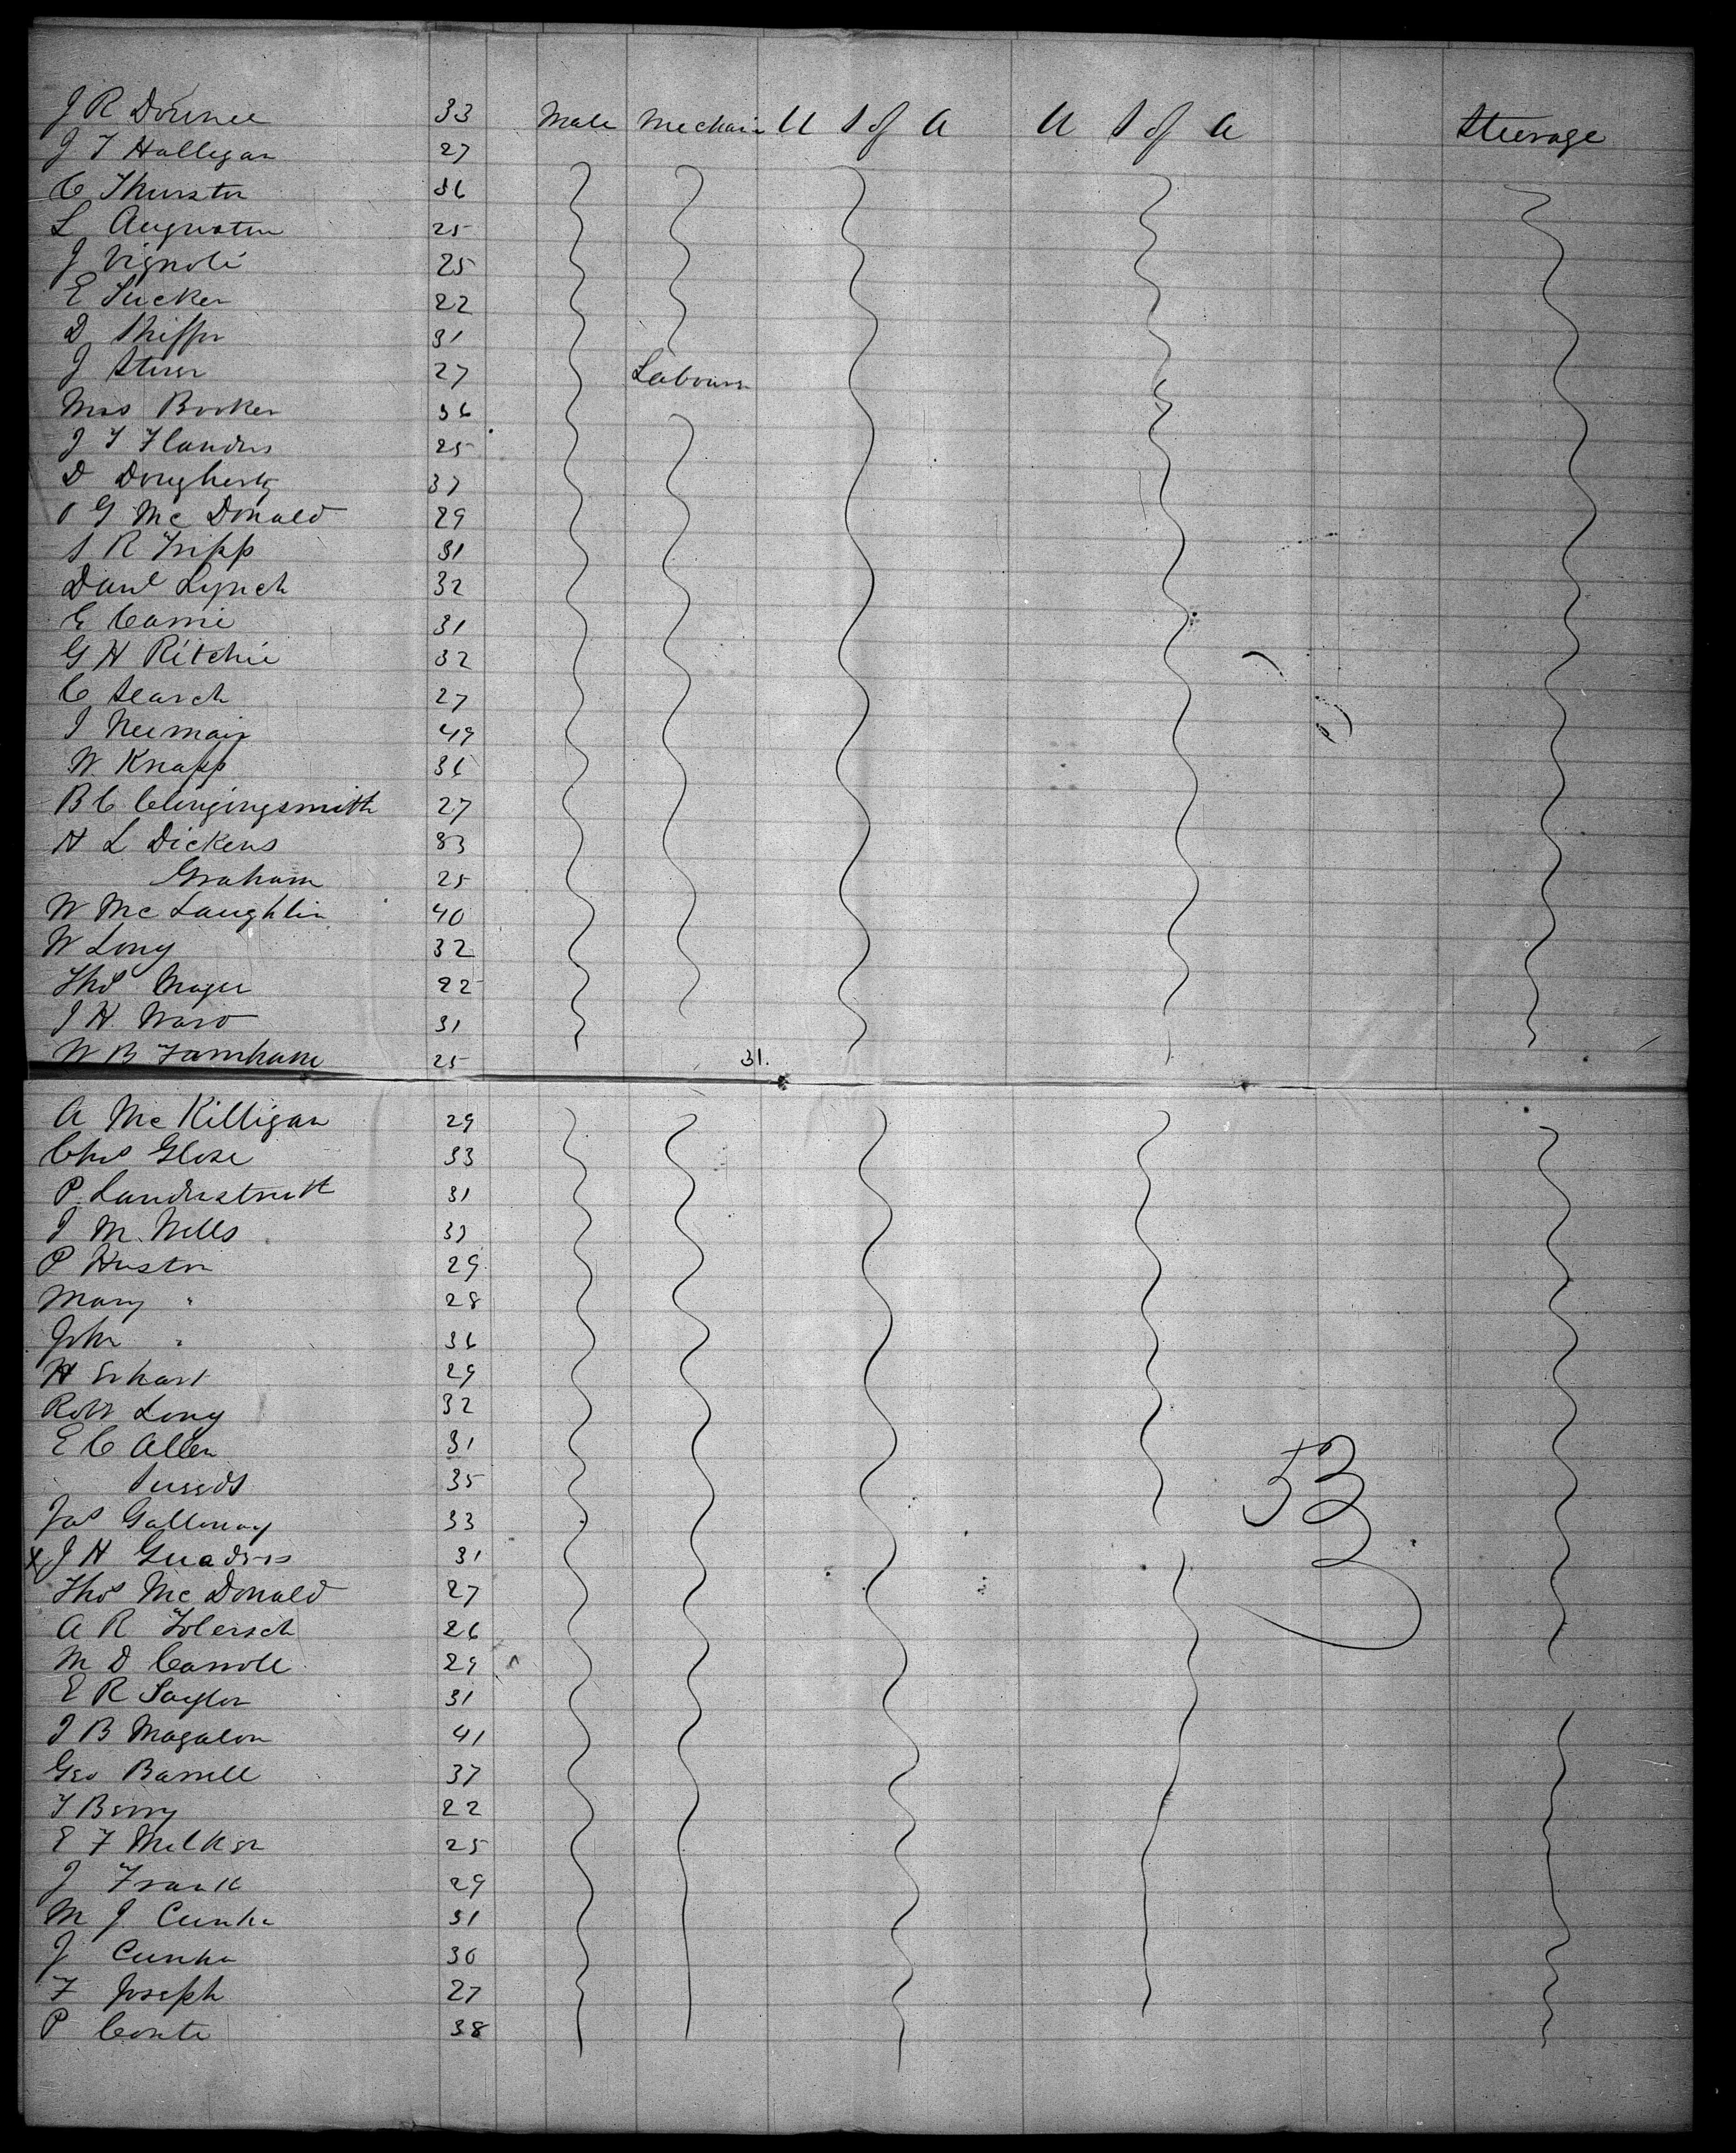 J R Dounce 33 Male Mechanic U S of A U S of A Steerage
J T Halligan 27
C Thurston 36
L Augustin 25
J Vignoli 25
E Tucker 22
D 31
J 27 Labourer
Mrs Booker 36
J T Flanders 25
D Dougherty 37
O G McDonald 29
S R Tripp 31
Danl Lynch 32
E Carrie 31
G H Ritchie 32
C Search 27
J 49
W. Knapp 36
B C Clingingsmith 27
H L Dickens 33
Graham 25
W McLaughlin 40
W Long 32
Thos Mayer 22
J H. Ward 31
W B Farnham 25 31.
A McKilligan 29
Chas Glose 33
P. 31
J M. Wells 33
P Huston 29
Mary " 28
John " 36
H Erhart 29
Robt Long 32
E C Allen 31 53
35
Jas Galloway 33
x J H 31
Thos McDonald 27
A R 26
M D Carroll 29
E R Taylor 31
J B Magalon 41
Geo Barrell 37
T Berry 22
E F Melker 25
J Frank 29
M J. Cunha 31
J Cunha 30
F Joseph 27
P Conte 38